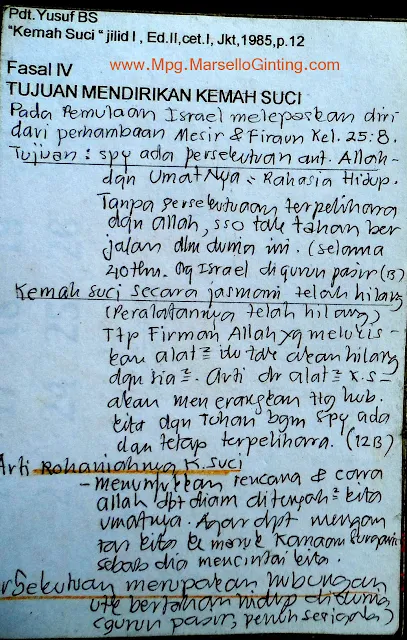 Pdt.Yusuf BS
"Kemah Suci " jilid I , Ed.II,cet.I, Jkt,1985,p.12
www.Mpg.MarselloGinting.com
Fasal IV
TUJUAN MENDIRIKAN KEMAH SUCI
Pada Pemulaan Israel melepaskan diri
dari perhambaan Mesir & Firaun Kel. 25:8.
Tujuan : spy ada persekutuan ant. Allah
dgn UmatNya = Rahasia Hidup.
Tanpa persekutuan terpelihara
dgn allah, sso tak tahan ber
jalan dlm dunia ini. (selama
40 thn. Israel di gurun pasir (B)
Kemah suci secara jasmani telah hilang
(Peralatannya telah hilang)
Ttp Firman Allah yg melukis-
kan alat² itu tak akan hilang
dgn sia². Arti dr alat² K.S-
akan menerangkan ttg hub.
kita dgn Tuhan bgm spy ada
dan tetap terpelihara. (12B)
Arti Rohaniahnya K. Suci
- menunjukkan rencana & cara
allah dpt diam ditengah² kita
umatnya. Agar dpt mengan
tar kita ke masuk Kanaan
sebab dia mencintai kita.
Persekutuan merupakan hubungan
utk bertahan hidup di dunia
(gurun pasir, penuh serigala)